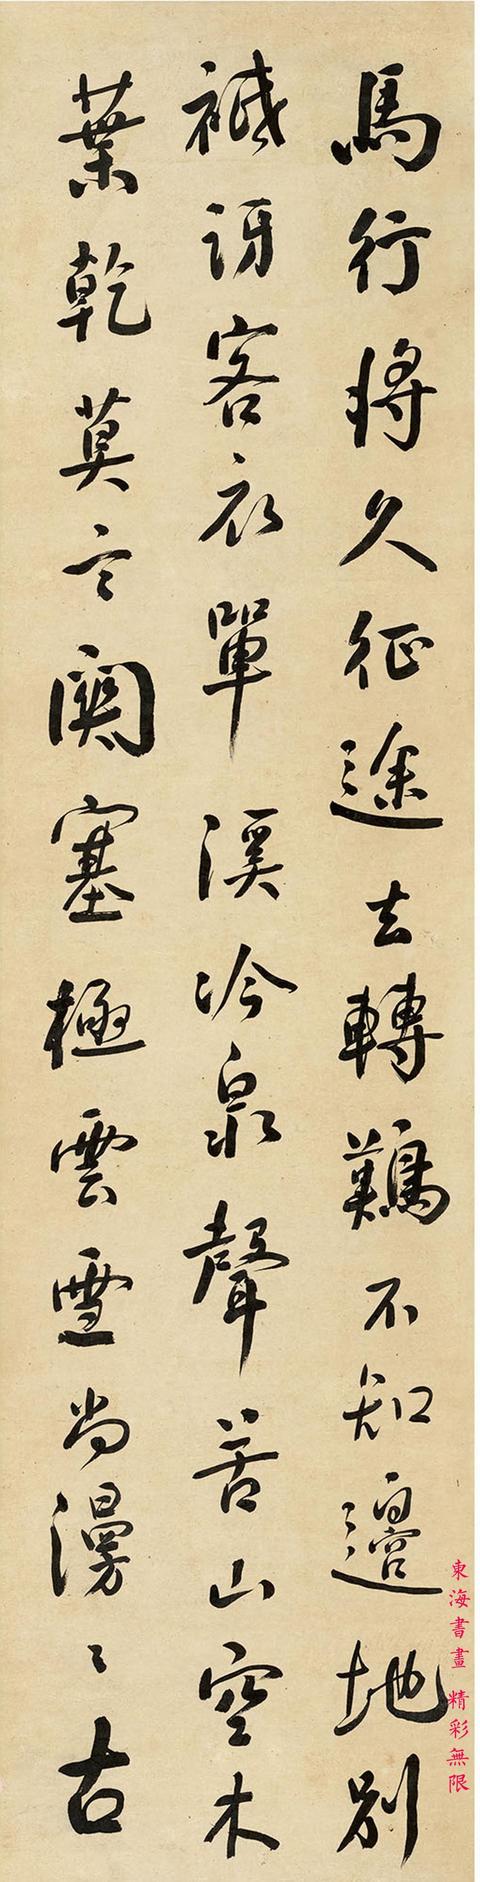 馬行將久征途去轉難不知邊地別
祗訝客衣單溪冷泉聲苦山空木
葉乾莫言關塞極雲雪尚漫〻古
東海書畫 精彩無限